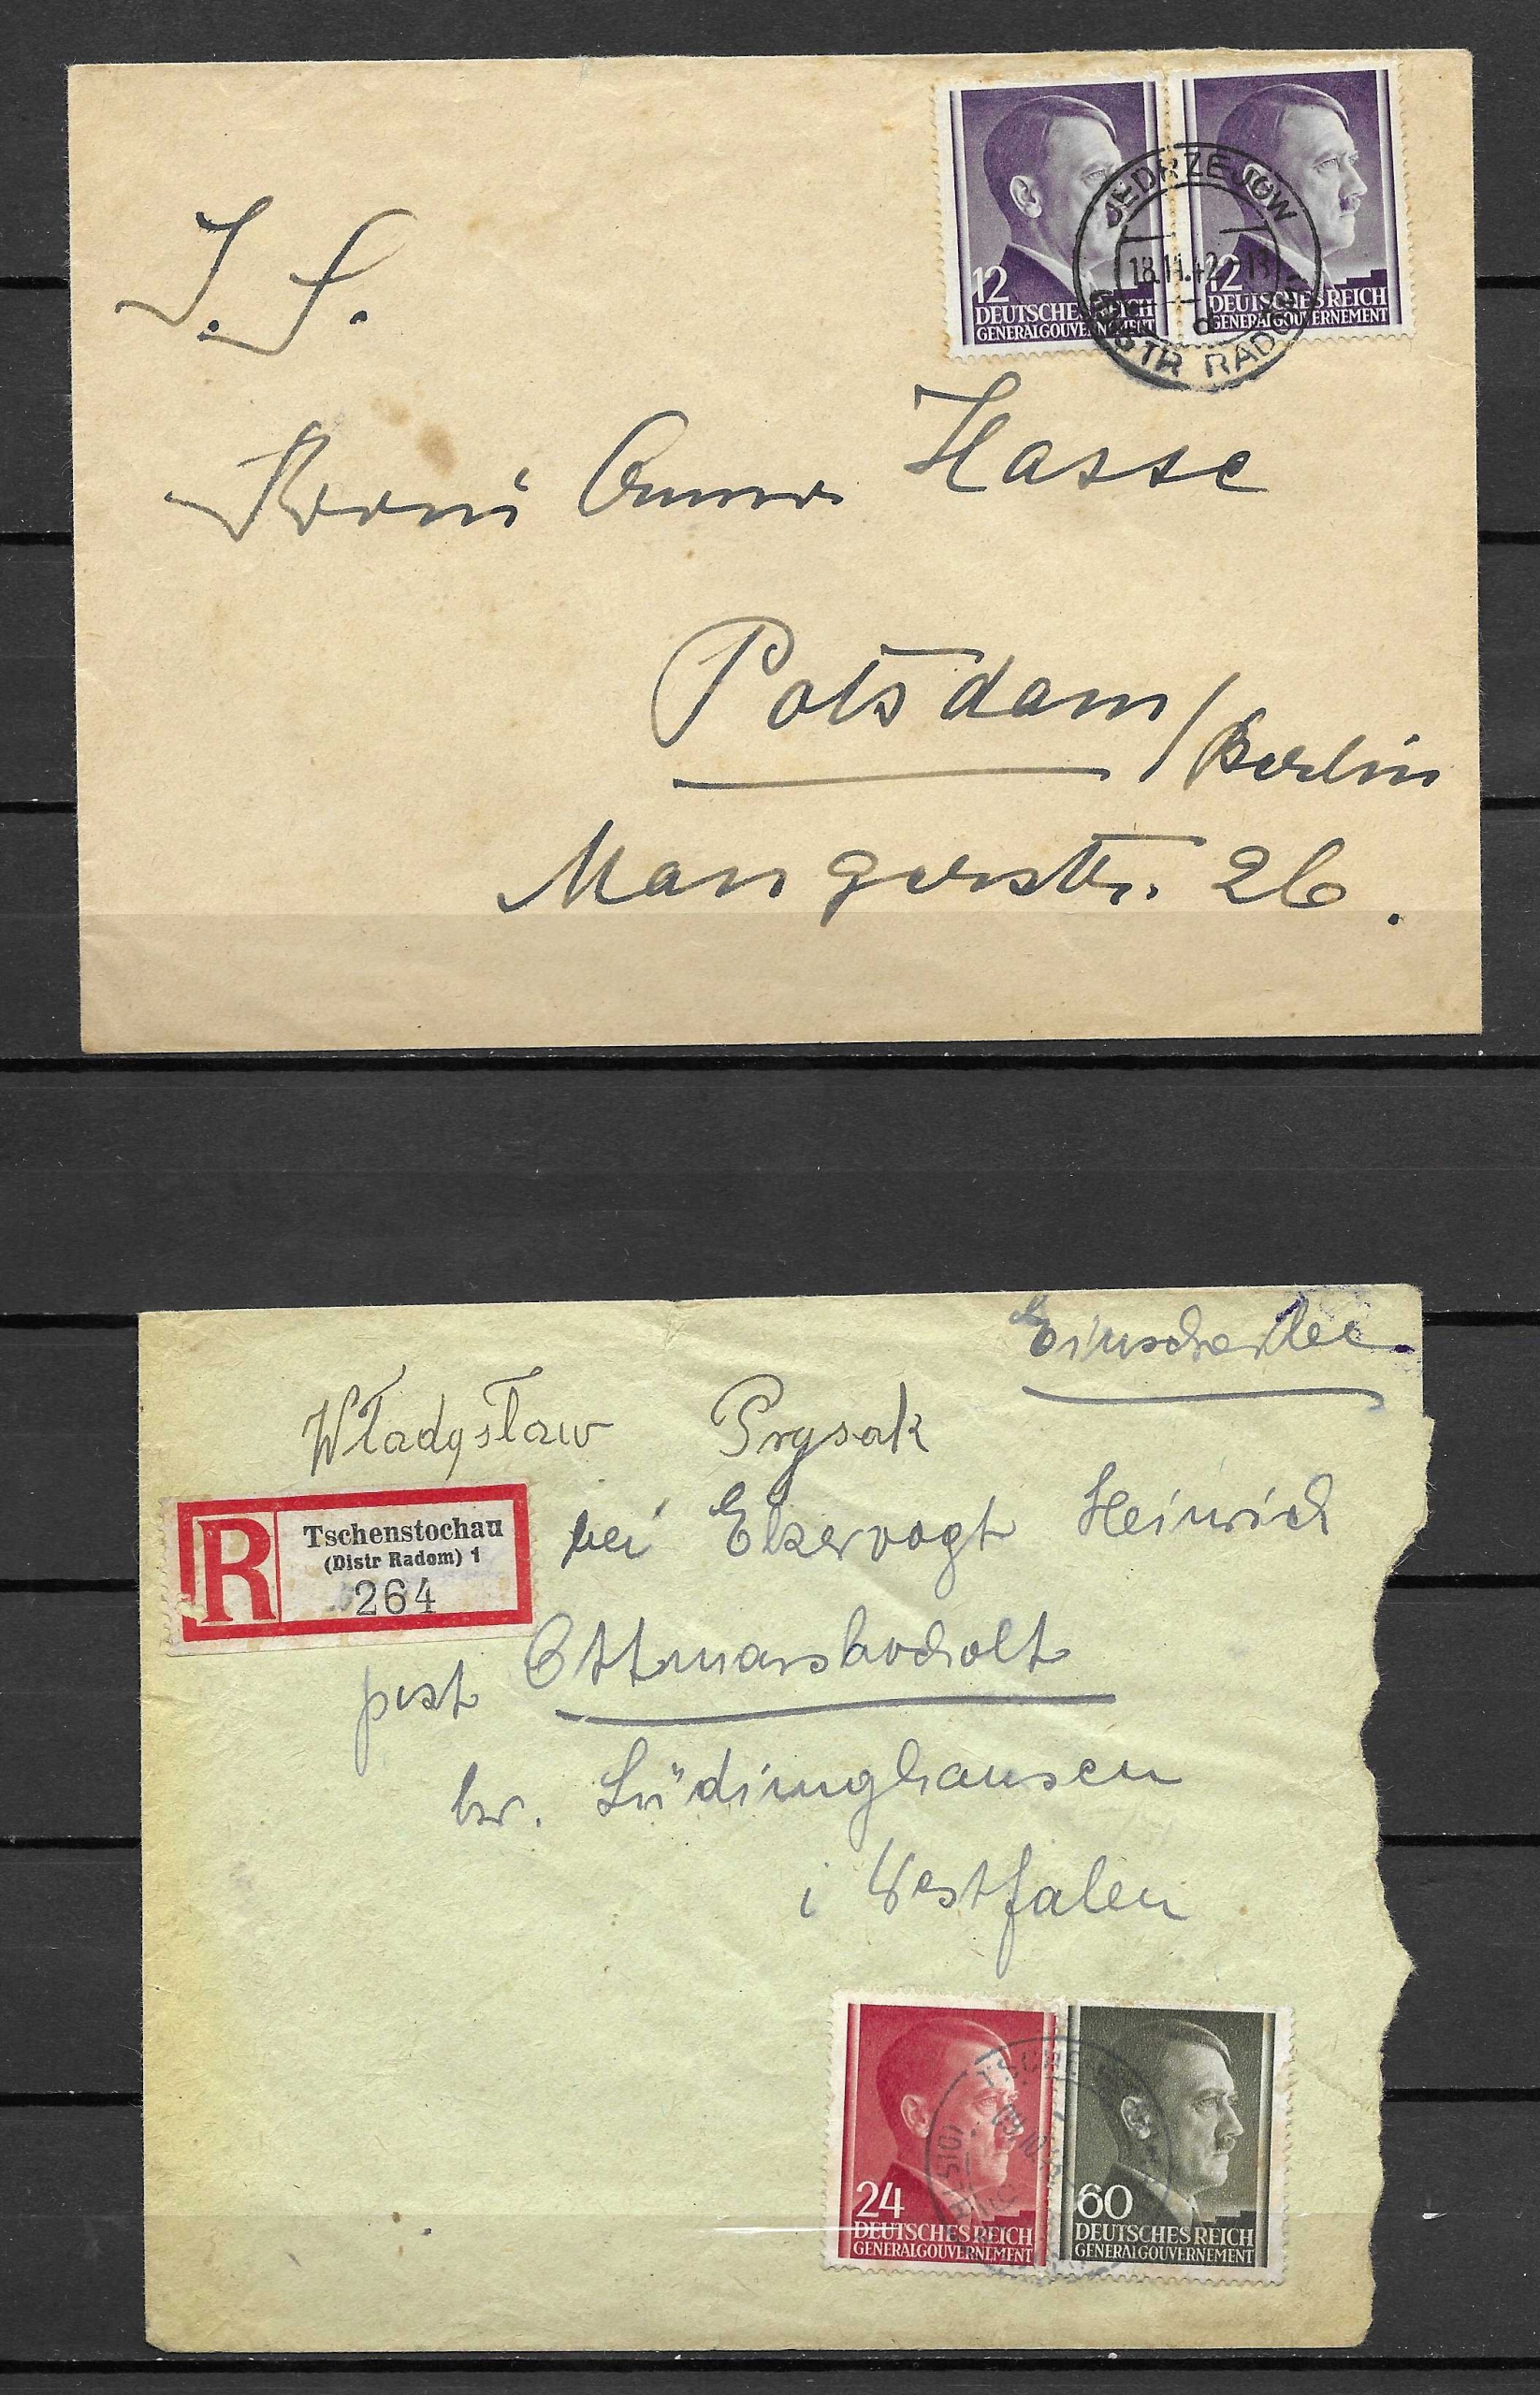 12
DEUTSCHES REICH
GENERALGOUVERNEMENT
12
DEUTSCHES REICH
GENERALGOUVERNEMENT
JEDRZEJOW
18.11.42
DISTR RADOM
Hasse
Potsdam/Berlin
Mangerstr. 26.
Władysław Prysak
R
Tschenstochau
(Distr Radom) 1
264
bei Elservogt Heinrich
post Ottmarsbocholt
Lüdinghausen
i Westfalen
24
DEUTSCHES REICH
GENERALGOUVERNEMENT
60
DEUTSCHES REICH
GENERALGOUVERNEMENT